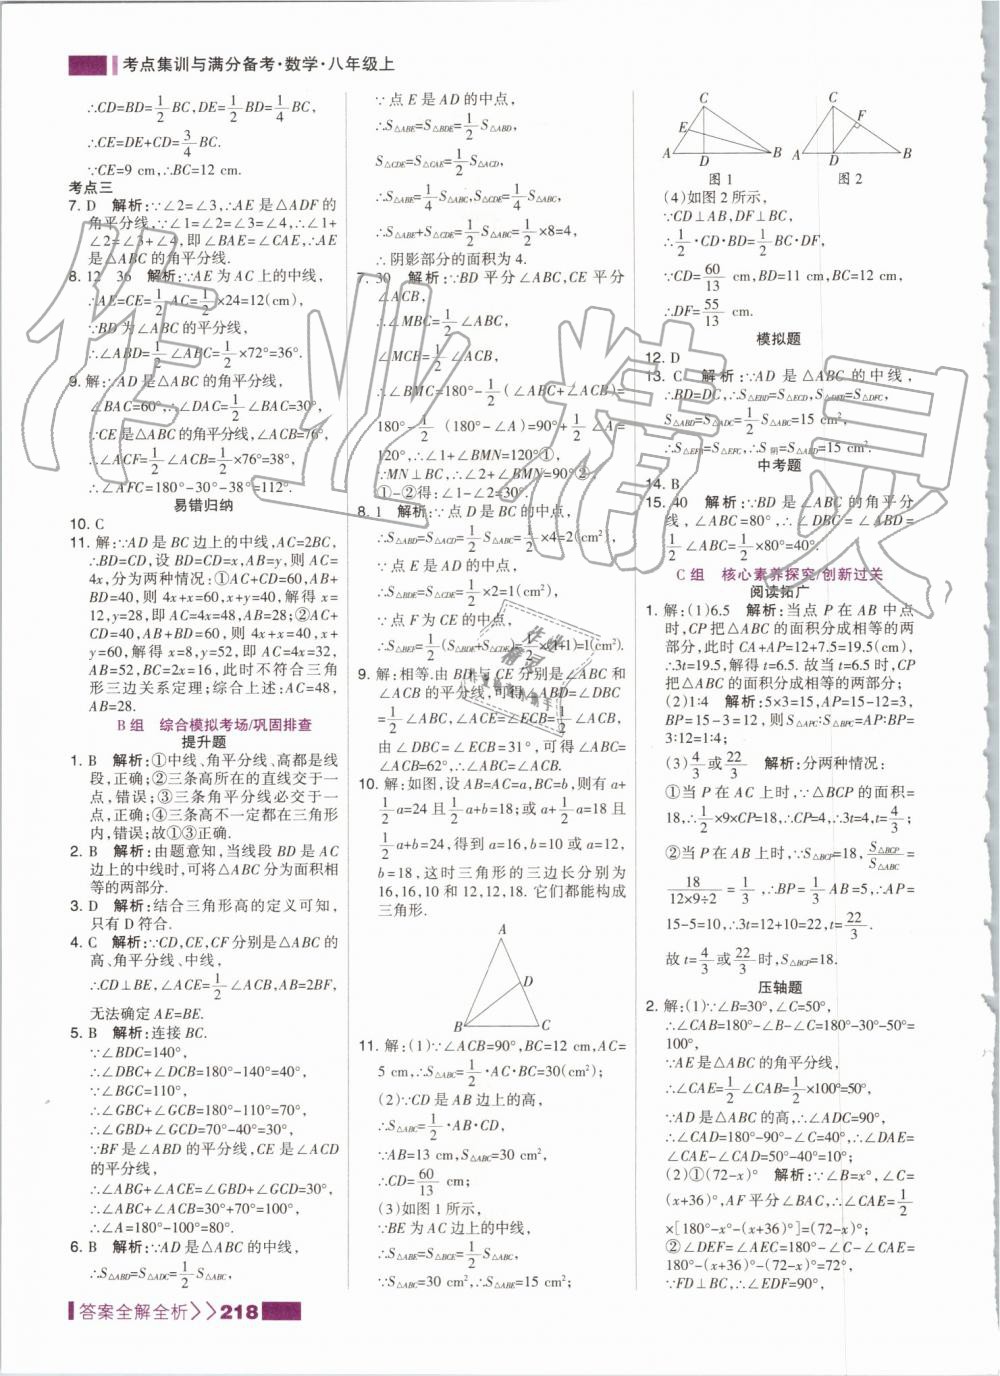 考点集训与满分备考·数学·八年级上
∴CD=BD=1/2 BC,DE=1/2 BD=1/4 BC,
∴CE=DE+CD=3/4 BC.
∵CE=9 cm,∴BC=12 cm.
考点三
7. D 解析:∵∠2=∠3,∴AE是△ADF的
角平分线.∵∠1=∠2=∠3=∠4,∴∠1+
∠2=∠3+∠4,即∠BAE=∠CAE,∴AE
是△ABC的角平分线.
8. 12 36 解析:∵AE为AC上的中线,
∴AE=CE=1/2 AC=1/2×24=12(cm),
∵BD为∠ABC的平分线,
∴∠ABD=1/2∠ABC=1/2×72°=36°.
9. 解:∵AD是△ABC的角平分线,
∠BAC=60°,∴∠DAC=1/2∠BAC=30°,
∵CE是△ABC的角平分线,∠ACB=76°,
∴∠ACF=1/2∠ACB=1/2×76°=38°,
∴∠AFC=180°-30°-38°=112°.
易错归纳
10. C
11. 解:∵AD是BC边上的中线,AC=2BC,
∴BD=CD,设BD=CD=x,AB=y,则AC=
4x,分为两种情况:①AC+CD=60,AB+
BD=40,则4x+x=60,x+y=40,解得x=
12,y=28,即AC=4x=48,AB=28;②AC+
CD=40,AB+BD=60,则4x+x=40,x+
y=60,解得x=8,y=52,即AC=4x=32,
AB=52,BC=2x=16,此时不符合三角
形三边关系定理;综合上述:AC=48,
AB=28.
B组 综合模拟考场/巩固排查
提升题
1. B 解析:①中线、角平分线、高都是线
段,正确;②三条高所在的直线交于一
点,错误;③三条角平分线必交于一
点,正确;④三条高不一定都在三角形
内,错误;故①③正确.
2. B 解析:由题意知,当线段BD是AC
边上的中线时,可将△ABC分为面积相
等的两部分.
3. D 解析:结合三角形高的定义可知,
只有D符合.
4. C 解析:∵CD,CE,CF分别是△ABC的
高、角平分线、中线,
∴CD⊥BE,∠ACE=1/2∠ACB,AB=2BF,
无法确定AE=BE.
5. B 解析:连接BC.
∵∠BDC=140°,
∴∠DBC+∠DCB=180°-140°=40°,
∵∠BGC=110°,
∴∠GBC+∠GCB=180°-110°=70°,
∴∠GBD+∠GCD=70°-40°=30°,
∵BF是∠ABD的平分线,CE是∠ACD
的平分线,
∴∠ABG+∠ACE=∠GBD+∠GCD=30°,
∴∠ABC+∠ACB=30°+70°=100°,
∴∠A=180°-100°=80°.
6. B 解析:∵AD是△ABC的中线,
∴S△ABD=S△ADC=1/2 S△ABC,
∵点E是AD的中点,
∴S△ABE=S△BDE=1/2 S△ABD,
S△CDE=S△CAE=1/2 S△ACD,
∴S△ABE=1/4 S△ABC,S△CDE=1/4 S△ABC,
∴S△ABE+S△CDE=1/2 S△ABC=1/2×8=4,
∴阴影部分的面积为4.
7. 30 解析:∵BD平分∠ABC,CE平分
∠ACB,
∴∠MBC=1/2∠ABC,
∠MCB=1/2∠ACB,
∴∠BMC=180°-1/2(∠ABC+∠ACB)=
180°-1/2(180°-∠A)=90°+1/2∠A=
120°,∴∠1+∠BMN=120°①.
∵MN⊥BC,∴∠2+∠BMN=90°②.
①-②得:∠1-∠2=30°.
8. 1 解析:∵点D是BC的中点,
∴S△ABD=S△ACD=1/2 S△ABC=1/2×4=2(cm²),
∵点E是AD的中点,
∴S△BDE=S△CDE=1/2×2=1(cm²),
∵点F为CE的中点,
∴S△BEF=1/2(S△BDE+S△CDE)=1/2×(1+1)=1(cm²).
9. 解:相等.由BD与CE分别是∠ABC和
∠ACB的平分线,可得∠ABD=∠DBC
=1/2∠ABC,∠ACE=∠ECB=1/2∠ACB,
由∠DBC=∠ECB=31°,可得∠ABC=
∠ACB=62°,∴∠ABC=∠ACB.
10. 解:如图,设AB=AC=a,BC=b,则有a+
1/2 a=24且1/2 a+b=18;或a+1/2 a=18且
1/2 a+b=24,得到a=16,b=10或a=12,
b=18,这时三角形的三边长分别为
16,16,10和12,12,18.它们都能构成
三角形.
A
D
B C
11. 解:(1)∵∠ACB=90°,BC=12 cm,AC=
5 cm,∴S△ABC=1/2·AC·BC=30(cm²);
(2)∵CD是AB边上的高,
∴S△ABC=1/2·AB·CD,
∵AB=13 cm,S△ABC=30 cm²,
∴CD=60/13 cm;
(3)如图1所示,
∵BE为AC边上的中线,
∴S△ABE=S△BCE=1/2 S△ABC,
∵S△ABC=30 cm²,∴S△ABE=15 cm²;
C
E
A D B
图1
C
F
A D B
图2
(4)如图2所示,
∵CD⊥AB,DF⊥BC,
∴1/2·CD·BD=1/2 BC·DF,
∵CD=60/13 cm,BD=11 cm,BC=12 cm,
∴DF=55/13 cm.
模拟题
12. D
13. C 解析:∵AD是△ABC的中线,
∴BD=DC,∴S△EBD=S△ECD,S△DBF=S△DFC,
S△ABD=S△ADC=1/2 S△ABC=15 cm²,
∴S△EFB=S△EFC,∴S阴=S△ABD=15 cm².
中考题
14. B
15. 40 解析:∵BD是∠ABC的角平分
线,∠ABC=80°,∴∠DBC=∠ABD=
1/2∠ABC=1/2×80°=40°.
C组 核心素养探究/创新过关
阅读拓广
1. 解:(1)6.5 解析:当点P在AB中点
时,CP把△ABC的面积分成相等的两
部分,此时CA+AP=12+7.5=19.5(cm),
∴3t=19.5,解得t=6.5.故当t=6.5时,CP
把△ABC的面积分成相等的两部分;
(2)1:4 解析:5×3=15,AP=15-12=3,
BP=15-3=12,则S△APC:S△BPC=AP:BP=
3:12=1:4;
(3)4/3或22/3 解析:分两种情况:
①当P在AC上时,∵△BCP的面积=
18,∴1/2×9×CP=18,∴CP=4,∴3t=4,t=4/3;
②当P在AB上时,∵S△BCP=18,S△BCP/S△ABC=
18/(12×9÷2)=1/3,∴BP=1/3 AB=5,∴AP=
15-5=10,∴3t=12+10=22,t=22/3.
故t=4/3或22/3时,S△BCP=18.
压轴题
2. 解:(1)∵∠B=30°,∠C=50°,
∴∠CAB=180°-∠B-∠C=180°-30°-50°=
100°,
∵AE是△ABC的角平分线,
∴∠CAE=1/2∠CAB=1/2×100°=50°,
∵AD是△ABC的高,∴∠ADC=90°,
∴∠CAD=180°-90°-∠C=40°,∴∠DAE=
∠CAE-∠CAD=50°-40°=10°;
(2)①(72-x)° 解析:∵∠B=x°,∠C=
(x+36)°,AF平分∠BAC,∴∠CAE=1/2
×[180°-x°-(x+36)°]=(72-x)°;
②∠DEF=∠AEC=180°-∠C-∠CAE=
180°-(x+36)°-(72-x)°=72°,
∵FD⊥BC,∴∠EDF=90°,
答案全解全析>>218
作业精灵